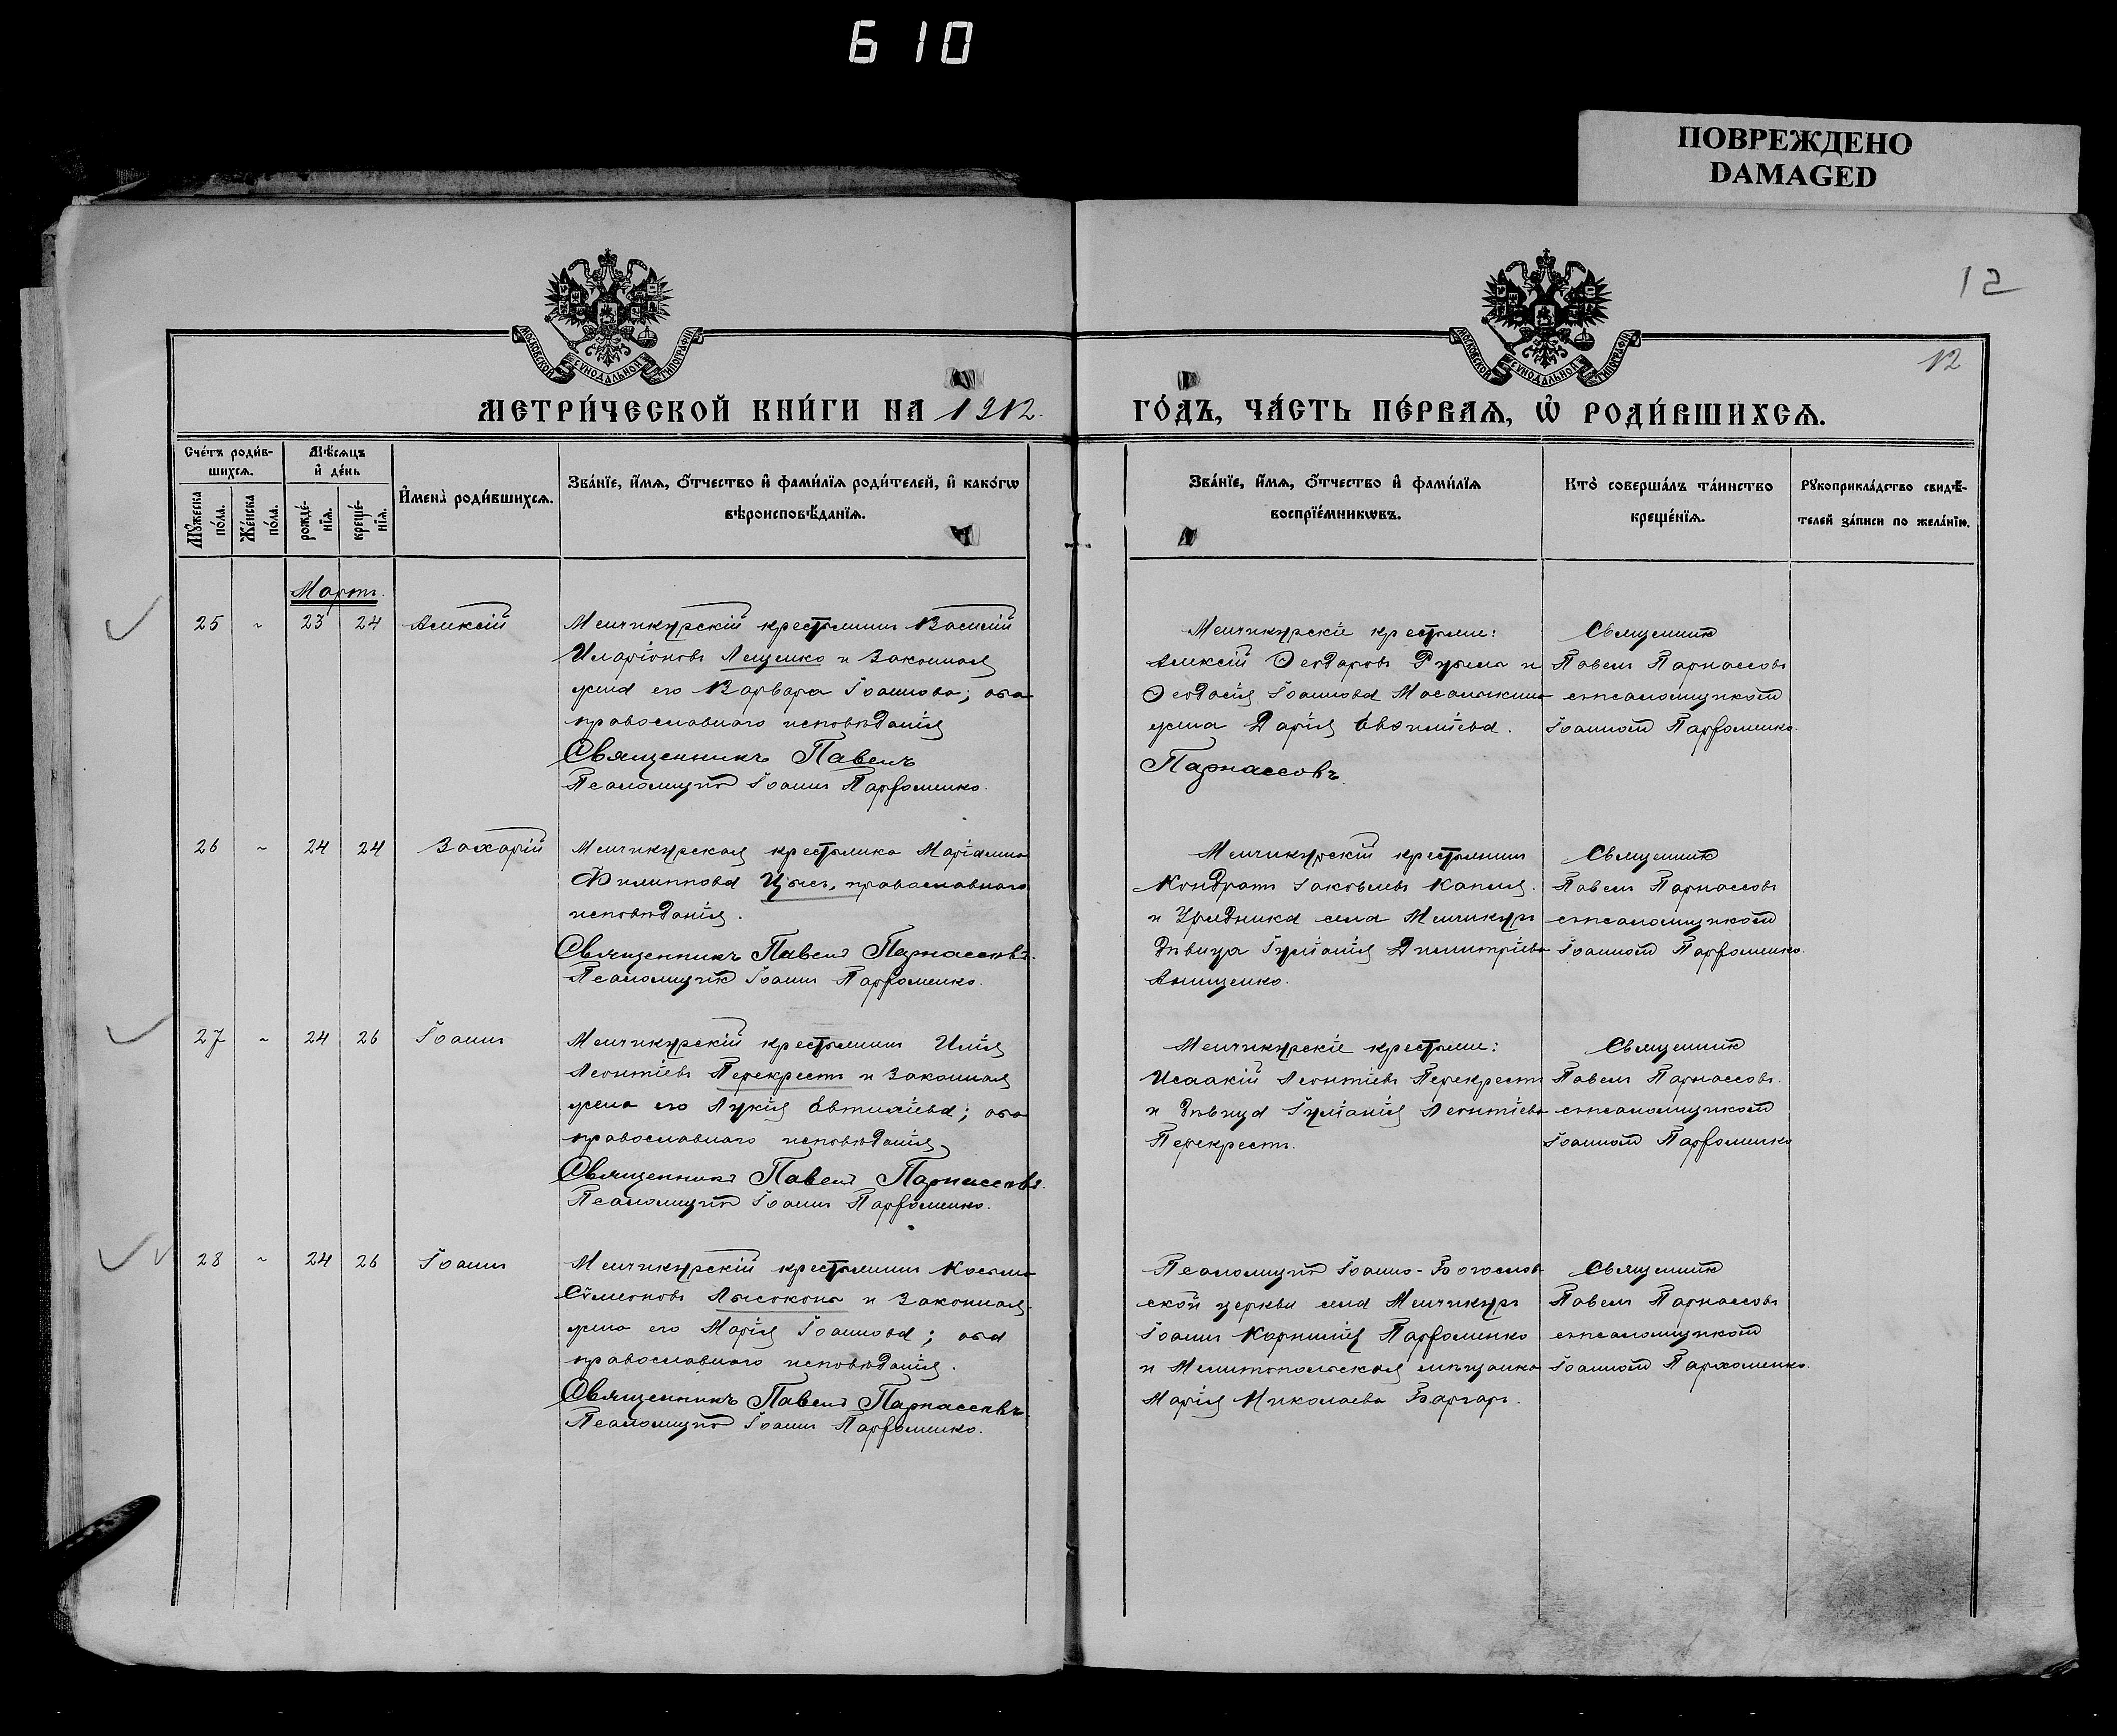 610
ПОВРЕЖДЕНО
DAMAGED
12
12
МОСКОВСКОЙ СУНОДАЛЬНОЙ ТИПОГРАФІИ
МОСКОВСКОЙ СУНОДАЛЬНОЙ ТИПОГРАФІИ
МЕТРИ́ЧЕСКОЙ КНИ́ГИ НА 1912.
ГО́ДЪ, ЧА́СТЬ ПЕ́РВАѦ, Ѡ҆ РОДИ́ВШИХСѦ.
Сче́тъ роди́в-
шихсѧ.
Мѣ́сѧцъ
и҆ де́нь
Мꙋ́жеска
по́ла.
Же́нска
по́ла.
рожде́-
нїѧ.
креще́-
нїѧ.
И҆мена̀ роди́вшихсѧ.
Зва́нїе, и҆́мѧ, ѻ҆́тчество и҆ фами́лїѧ роди́телей, и҆ како́гѡ
вѣроисповѣ́данїѧ.
Зва́нїе, и҆́мѧ, ѻ҆́тчество и҆ фами́лїѧ
воспрїе́мникѡвъ.
Кто̀ соверша́лъ та́инство
креще́нїѧ.
Рꙋкоприкла́дство свидѣ́-
телей за́писи по жела́нїю.
Мартъ.
25 ~ 23 24 Алексій
Менчикурскій крестьянинъ Василій
Иларіоновъ Лещенко и законная
жена его Варвара Іоаннова; оба
православнаго исповѣданія
Священникъ Павелъ
Псаломщикъ Іоаннъ Парфоменко.
Менчикурскіе крестьяне:
Алексій Ѳеодоровъ Рузма и
Ѳеодосія Іоаннова
жена Дарія Евѳиміева.
Парнассовъ.
Священникъ
Павелъ Парнассовъ
съ псаломщикомъ
Іоанномъ Парфоменко.
26 ~ 24 24 Захарій
Менчикурская крестьянка Маріамна
Филиппова Цысь, православнаго
исповѣданія.
Священникъ Павелъ Парнассовъ.
Псаломщикъ Іоаннъ Парфоменко.
Менчикурскій крестьянинъ
Кондратъ Іаковлевъ Капля.
и Урядника села Менчикуръ
дѣвица Гуліанія Димитріева
Анищенко.
Священникъ
Павелъ Парнассовъ
съ псаломщикомъ
Іоанномъ Парфоменко.
27 ~ 24 26 Іоаннъ
Менчикурскій крестьянинъ Илія
Леонтіевъ Перекрестъ и законная
жена его Лукія Евтихіева; оба
православнаго исповѣданія
Священникъ Павелъ Парнассовъ.
Псаломщикъ Іоаннъ Парфоменко.
Менчикурскіе крестьяне:
Исаакій Леонтіевъ Перекрестъ
и дѣвица Гуліанія Леонтіева
Перекрестъ.
Священникъ
Павелъ Парнассовъ.
съ псаломщикомъ
Іоанномъ Парфоменко
28 ~ 24 26 Іоаннъ
Менчикурскій крестьянинъ Косьма
Сѵмеоновъ Лысоконь и законная
жена его Марія Іоаннова; оба
православнаго исповѣданія.
Священникъ Павелъ Парнассовъ.
Псаломщикъ Іоаннъ Парфоменко.
Псаломщикъ Іоанно-Богослов-
ской церкви села Менчикуръ
Іоаннъ Корнилія Парфоменко
и Мелитопольская мѣщанка
Марія Николаева
Священникъ
Павелъ Парнассовъ
съ псаломщикомъ
Іоанномъ Пархоменко.